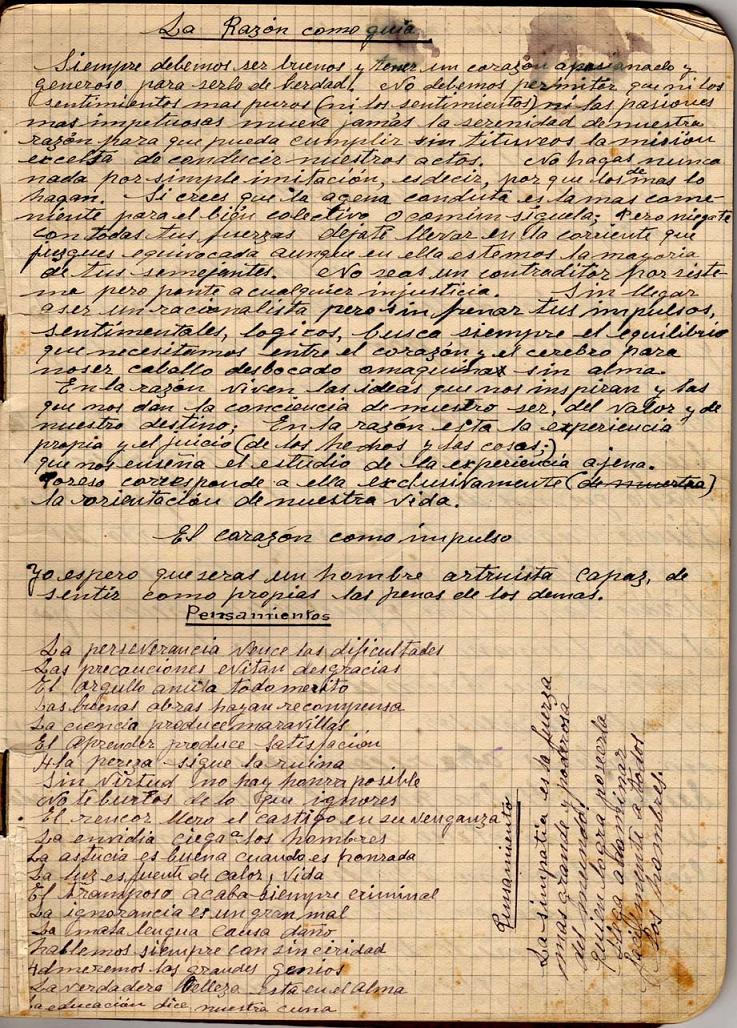 La Razón como guia
Siempre debemos ser buenos y tener un corazón apasianado y
generoso, para serlo de berdad. No debemos permitir que ni los
sentimientos mas puros (ni los sentimientos) ni las pasiones
mas impetuosas mueve jamás la serenidad de nuestra
razón para que pueda cumplir sin titubeos la mision
excelsa de conducir nuestros actos. No hagas nunca
nada por simple imitación, es decir, por que los demas lo
hagan. Si crees que la agena conducta es la mas combe-
niente para el bien colectivo o comim siguela; Pero niegate
con todas tus fuerzas dejate llevar en la coriente que
juzgues equivocada aunque en ella estemos la mayoria
de tus semejantes. No seas un contraditor por siste-
ma pero ponte a cualquier injusticia. Sin llegar
a ser un racionalista pero sin penar tus impulsos,
sentimentales, logicos, busca siempre el equilibrio
que necesitamos entre el corazón y el cerebro para
no ser caballo desbocado o maquinas sin alma.
En la razón viven las ideas que nos inspiran y las
que nos dan la conciencia de nuestro ser, del valor y de
nuestro destino; En la razón esta la experiencia
propia y el juicio (de los hechos y las cosas;)
que nos enseña el estudio de la experiencia ajena.
Por eso corresponde a ella exclusivamente (de nuestra)
la rorientación de nuestra vida.
El corazón como impulso
Yo espero que seras un hombre artruista capaz, de
sentir como propias las penas de los demas.
Pensamientos
La perseverancia vence las dificultades
Las precauciones evitan desgracias
El orgullo anula todo merito
Las buenas obras hayan recompensa
La ciencia produce maravillas
El Aprender produce satisfación
A la pereza sigue la ruina
Sin virtud no hay honra posible
No te burles de lo que ignores
El rencor lleva el castigo en su venganza
La envidia ciega a los hombres
La astucia es buena cuando es honrada
La luz es fuente de calor y vida
El tramposo acaba siempre criminal
La ignorancia es un gran mal
La mala lengua causa daño
hablemos siempre con sinciridad
Admeremos los grandes genios
La verdadera belleza esta en el alma
La educación dice nuestra cuna
Pensamiento
La simpatia es la fuerza
mas grande y poderosa
del mundo!
Quien logra poseerla
llega a dominar
facilmente a todos
los hombres.